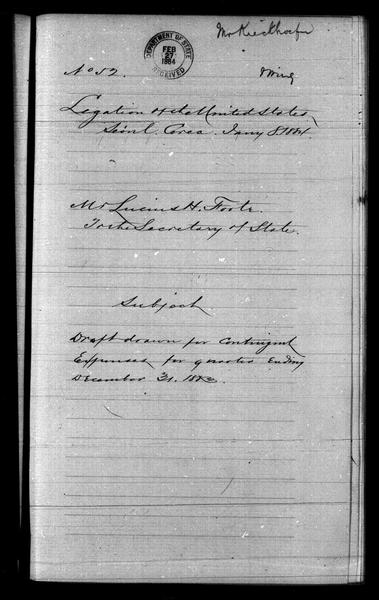 Mr Kieckhoefer
DEPARTMENT OF STATE
FEB
27
1884
RECEIVED
No 52.
Legation of the United States,
Seoul, Corea. Jany 8 1884.
Mr Lucius H. Foote.
To the Secretary of State.
Subject
Draft drawn for Contingent
Expenses for quarter ending
December 31. 1883.